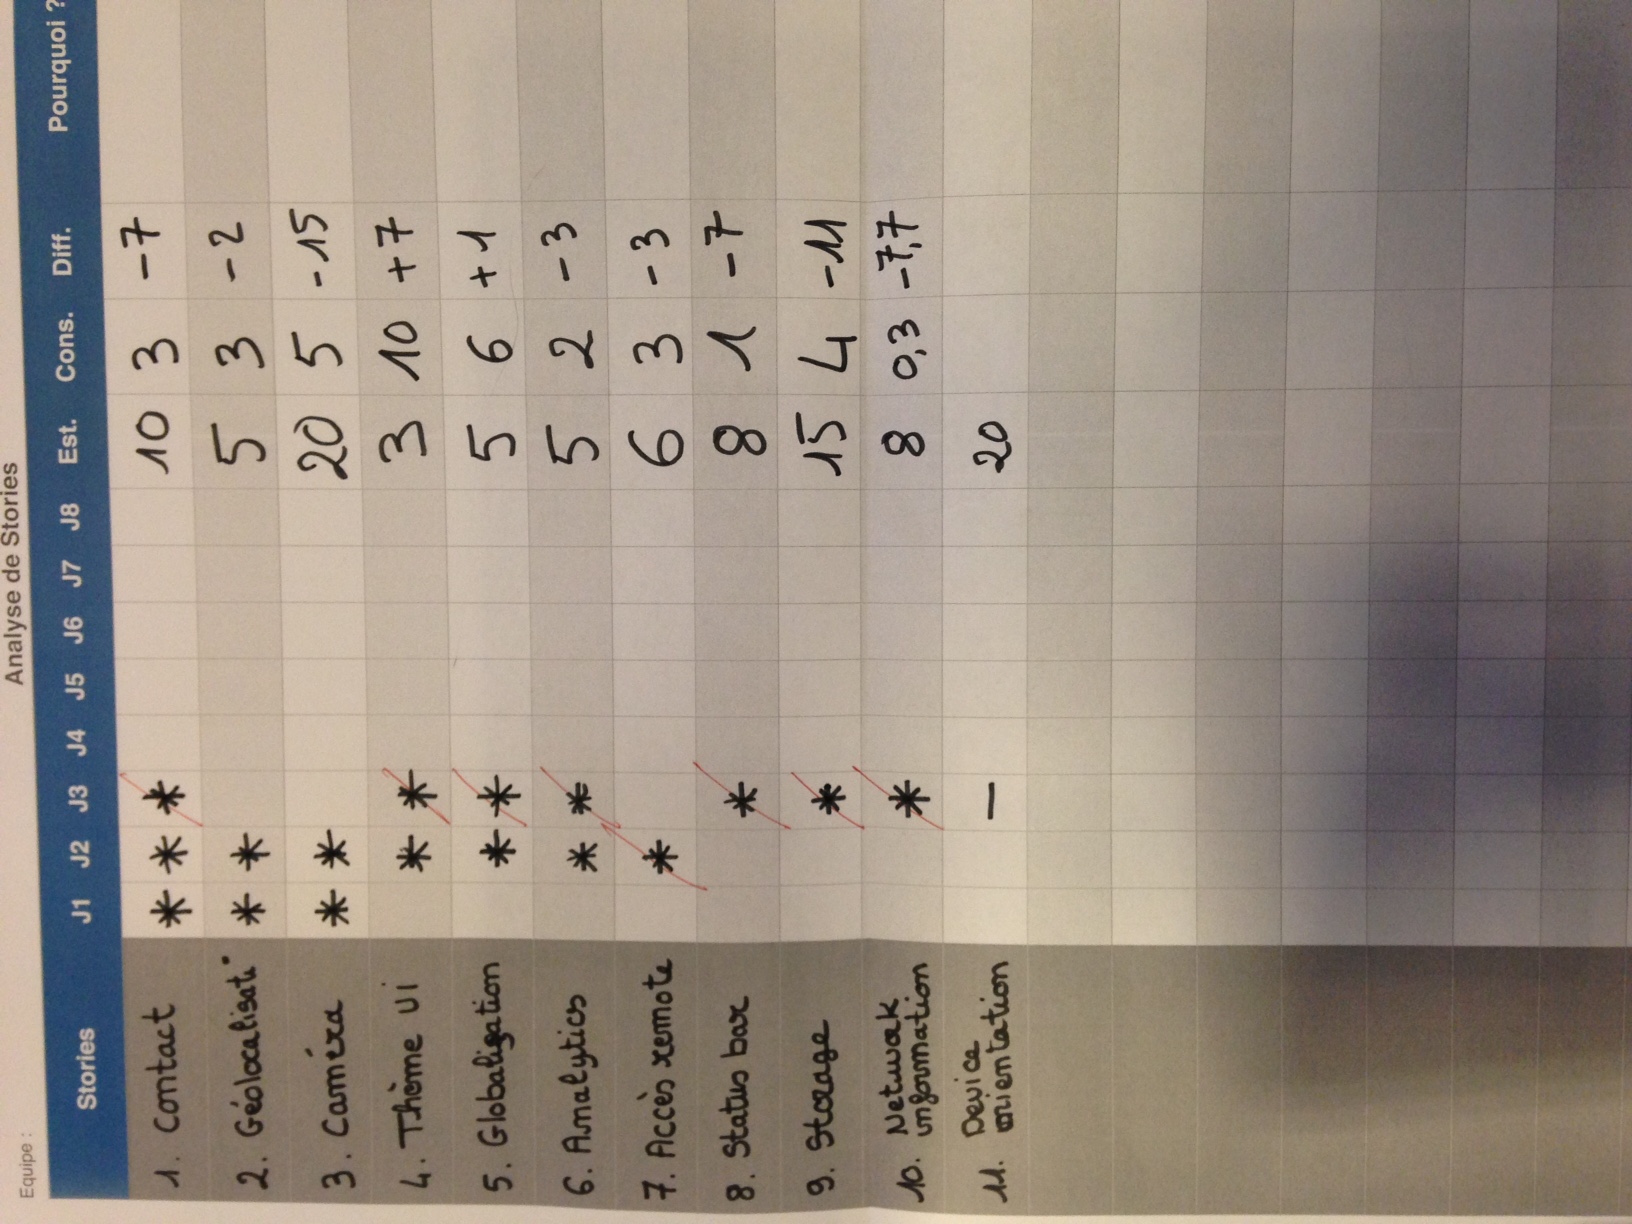 Analyse de Stories
Equipe :
Stories J1 J2 J3 J4 J5 J6 J7 J8 Est. Cons. Diff. Pourquoi ?
1. Contact * * * 10 3 -7
2. Géolocalisati° * * 5 3 -2
3. Caméra * * 20 5 -15
4. Thème Ui * * 3 10 +7
5. Globalisation * * 5 6 +1
6. Analytics * * 5 2 -3
7. Accès remote * 6 3 -3
8. Status bar * 8 1 -7
9. Storage * 15 4 -11
10. Network
information * 8 0,3 -7,7
11. Device
orientation — 20